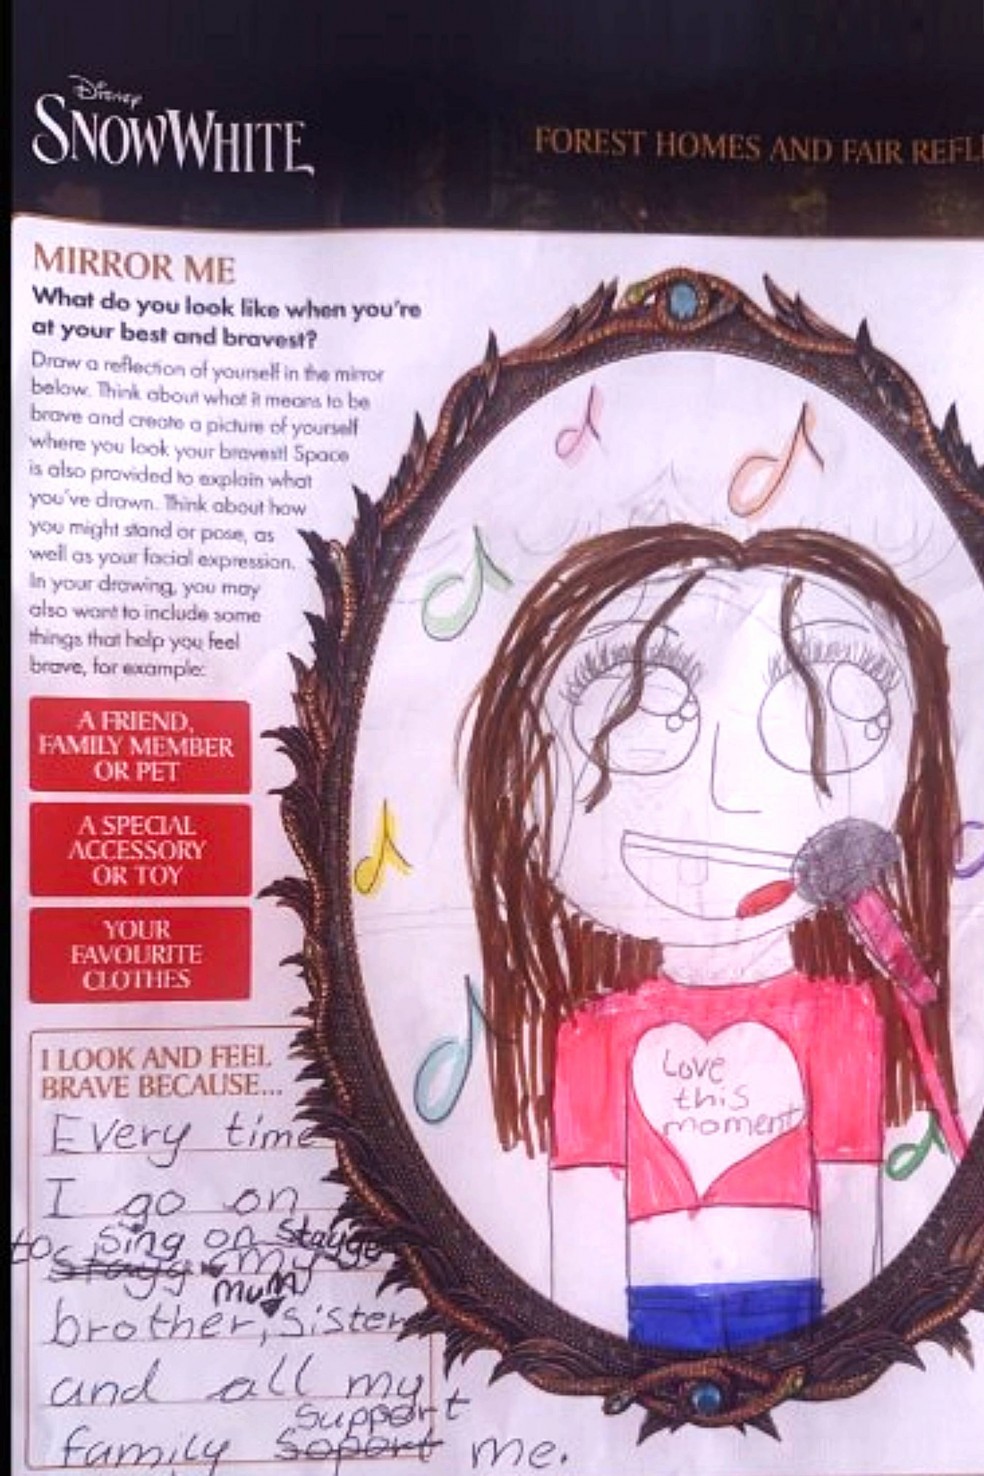 Disney
SNOW WHITE
FOREST HOMES AND FAIR REFL
MIRROR ME
What do you look like when you're
at your best and bravest?
Draw a reflection of yourself in the mirror
below. Think about what it means to be
brave and create a picture of yourself
where you look your bravest! Space
is also provided to explain what
you've drawn. Think about how
you might stand or pose, as
well as your facial expression.
In your drawing, you may
also want to include some
things that help you feel
brave, for example:
A FRIEND,
FAMILY MEMBER
OR PET
A SPECIAL
ACCESSORY
OR TOY
YOUR
FAVOURITE
CLOTHES
I LOOK AND FEEL
BRAVE BECAUSE...
Every time
I go on
to sing on stayge
stayg my
mum
brother, sister
and all my
support
family soport me.
Love
this
moment